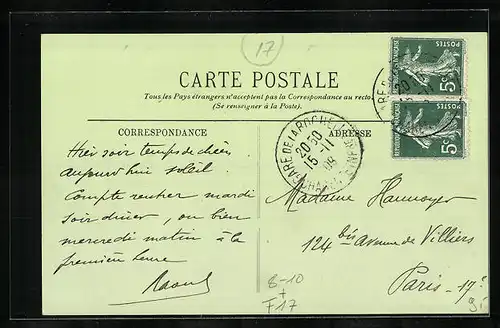 17
CARTE POSTALE
Tous les Pays étrangers n'acceptent pas la Correspondance au recto
(Se renseigner à la Poste).
CORRESPONDANCE
ADRESSE
POSTES
5c
POSTES
5c
GARE DE LA ROCHELLE
20 50
15-11
08
Hier soir temps de chien
aujourd'hui soleil.
Compte rentrer mardi
soir diner, ou bien
mercredi matin à la
première heure
Raoul
Madame Hannoyer
124 bis avenue de Villiers
Paris-17e
8-10
+
F17